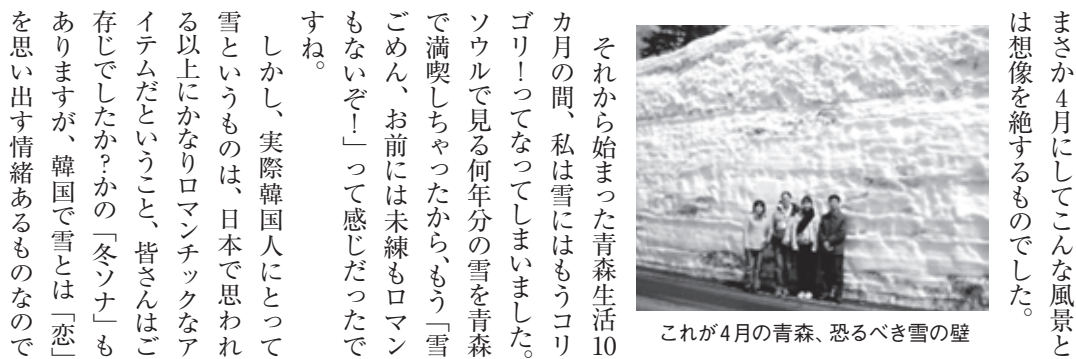 まさか4月にしてこんな風景と
は想像を絶するものでした。
これが4月の青森、恐るべき雪の壁
それから始まった青森生活10
カ月の間、私は雪にはもうコリ
ゴリ！ってなってしまいました。
ソウルで見る何年分の雪を青森
で満喫しちゃったから、もう「雪
ごめん、お前には未練もロマン
もないぞ！」って感じだったで
すね。
しかし、実際韓国人にとって
雪というものは、日本で思われ
る以上にかなりロマンチックなア
イテムだということ、皆さんはご
存じでしたか？かの「冬ソナ」も
ありますが、韓国で雪とは「恋」
を思い出す情緒あるものなので